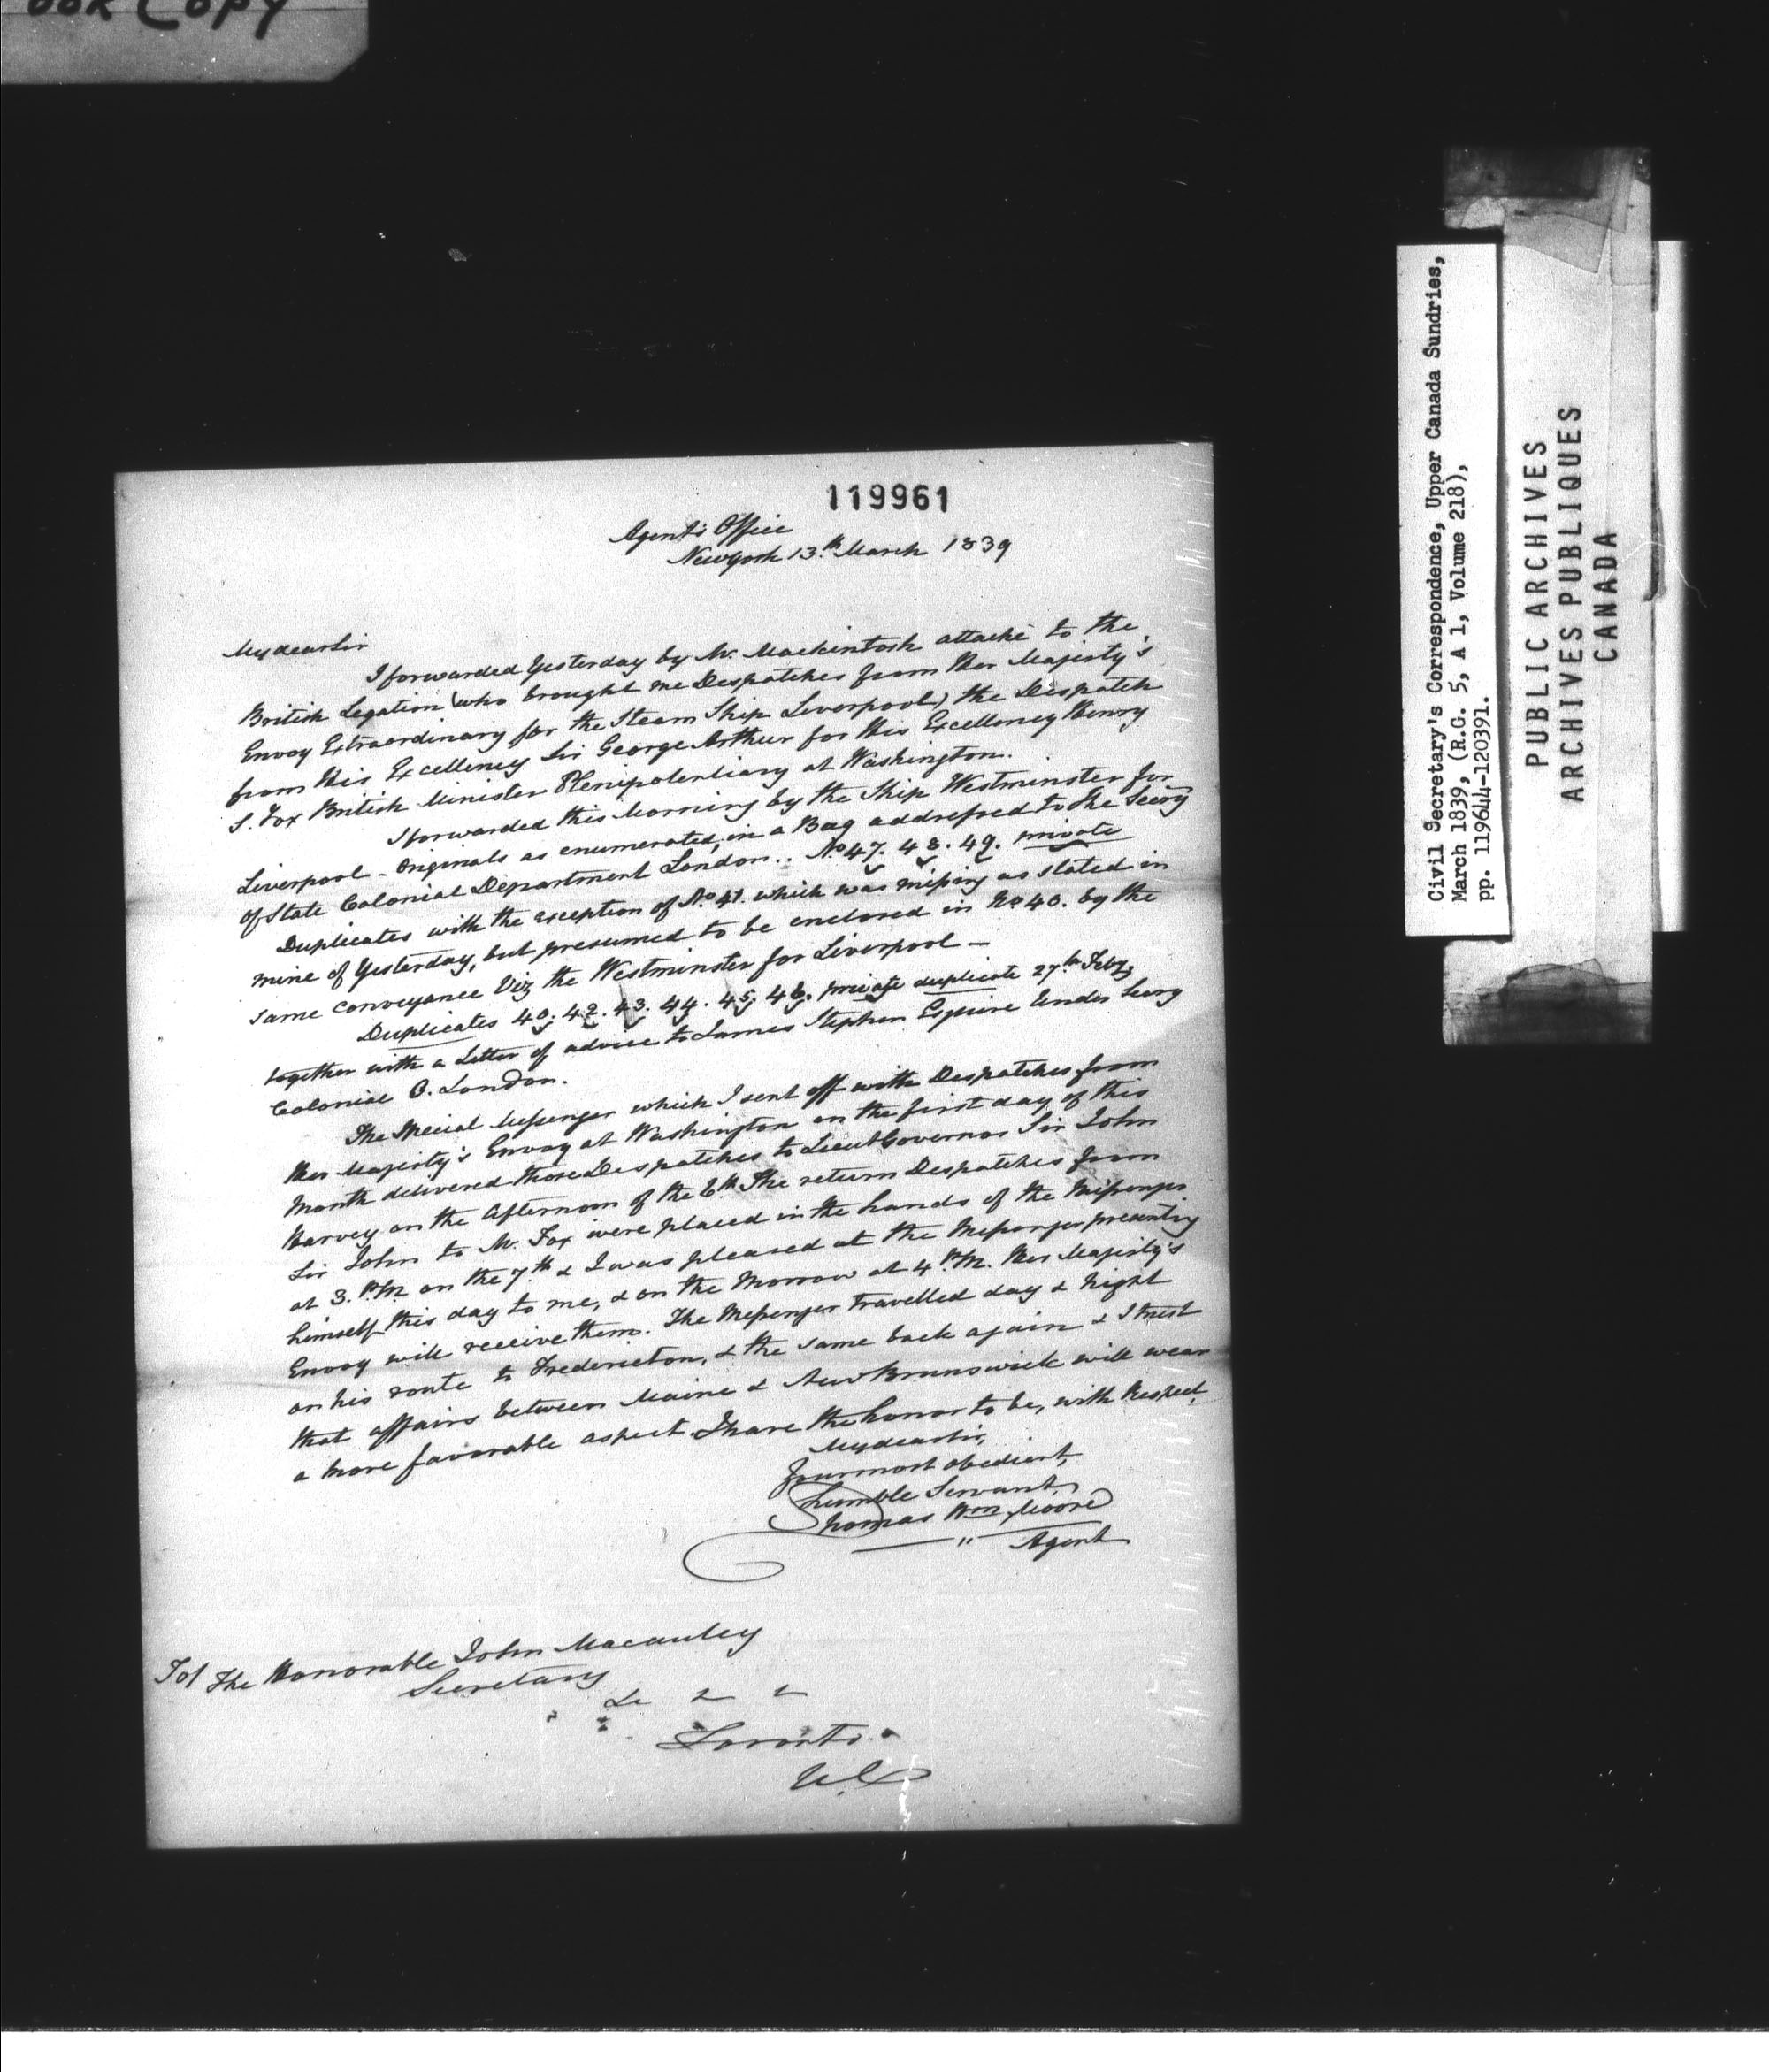 ook Copy
119961
Agent's Office
New York 13.th March 1839
My dear Sir
I forwarded Yesterday by Mr. Mackintosh attaché to the
British Legation (who brought me Despatches from Her Majesty's
Envoy Extraordinary for the Steam Ship Liverpool) the Despatch
from His Excellency Sir George Arthur for His Excellency Henry
S. Fox British Minister Plenipotentiary at Washington.
I forwarded this Morning by the Ship Westminster for
Liverpool - Originals as enumerated, in a Bag addressed to the Secry
of State Colonial Department London.. No. 47. 48. 49. private
Duplicates with the exception of No. 41. which was missing as stated in
mine of Yesterday, but presumed to be enclosed in No 40. by the
same conveyance Viz the Westminster for Liverpool -
Duplicates 40. 42. 43. 44. 45, 46. private duplicate 27th Feby,
together with a Letter of advice to James Stephen Esquire Under Secry
Colonial O. London.
The Special Messenger which I sent off with Despatches from
Her Majesty's Envoy at Washington on the first day of this
Month delivered those Despatches to Lieut Governor Sir John
Harvey on the Afternoon of the 6th The return Despatches from
Sir John to Mr. Fox were placed in the hands of the Messenger
at 3. P.M. on the 7th & I was pleased at the Messenger presenting
himself this day to me, & on the Morrow at 4 P.M. Her Majesty's
Envoy will receive them. The Messenger travelled day & night
on his route to Fredericton, & the same back again & I trust
that affairs between Maine & New Brunswick will wear
a more favorable aspect I have the honor to be, with Respect,
My dear Sir,
Your most obedient,
humble Servant,
Thomas Wm Moore
Agent
To/ The Honorable John Macauley
Secretary
&c
Toronto
U.C
Civil Secretary's Correspondence, Upper Canada Sundries,
March 1839, (R.G. 5, A 1, Volume 218),
pp. 119644-120391.
PUBLIC ARCHIVES
ARCHIVES PUBLIQUES
CANADA